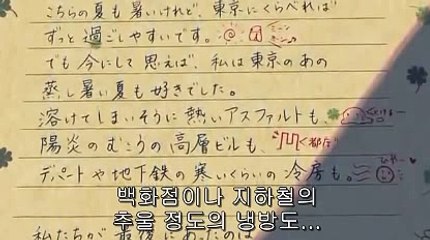 こちらの夏も暑いけれど、東京にくらべれば
ずっと過ごしやすいです。
でも今にして思えば、私は東京のあの
蒸し暑い夏も好きでした。
溶けてしまいそうに熱いアスファルトも、
陽炎のむこうの高層ビルも、
デパートや地下鉄の寒いくらいの冷房も。
백화점이나 지하철의
추울 정도의 냉방도...
私たちが最後にあったのは